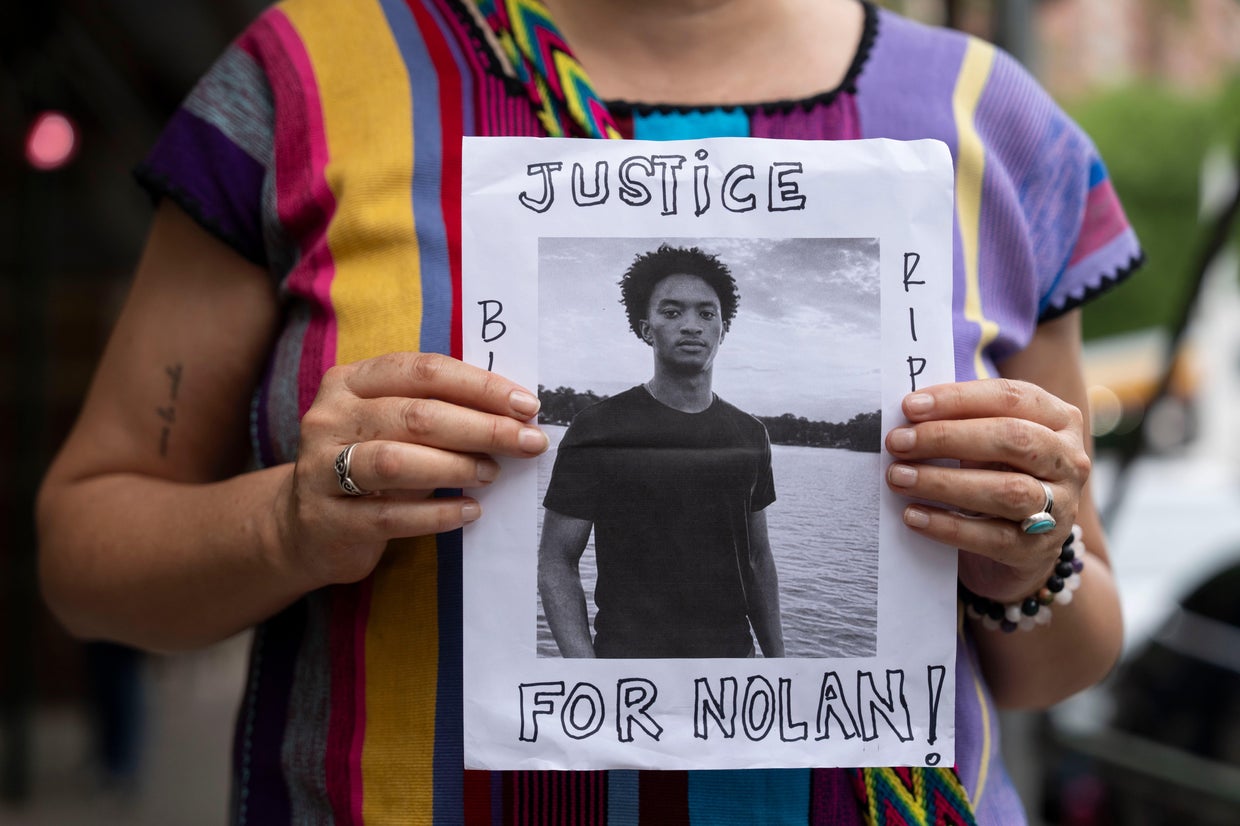 JUSTiCE
B
RIP
FOR NOLAN!